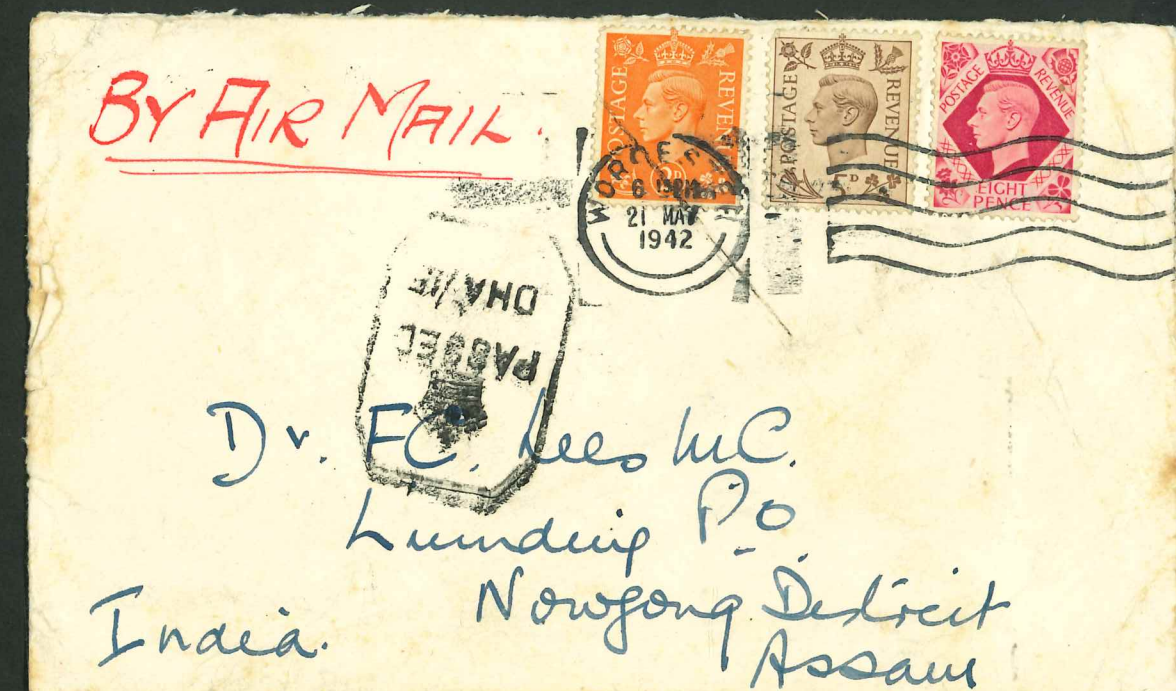 BY AIR MAIL.
POSTAGE REVENUE
2D
POSTAGE REVENUE
5D
POSTAGE REVENUE
EIGHT
PENCE
WORCESTER
6 PM
21 MAY
1942
PASSED
DHA/
Dr. F.C. Lees M.C.
Lumding P.O
Nowgong District
Assam
India.